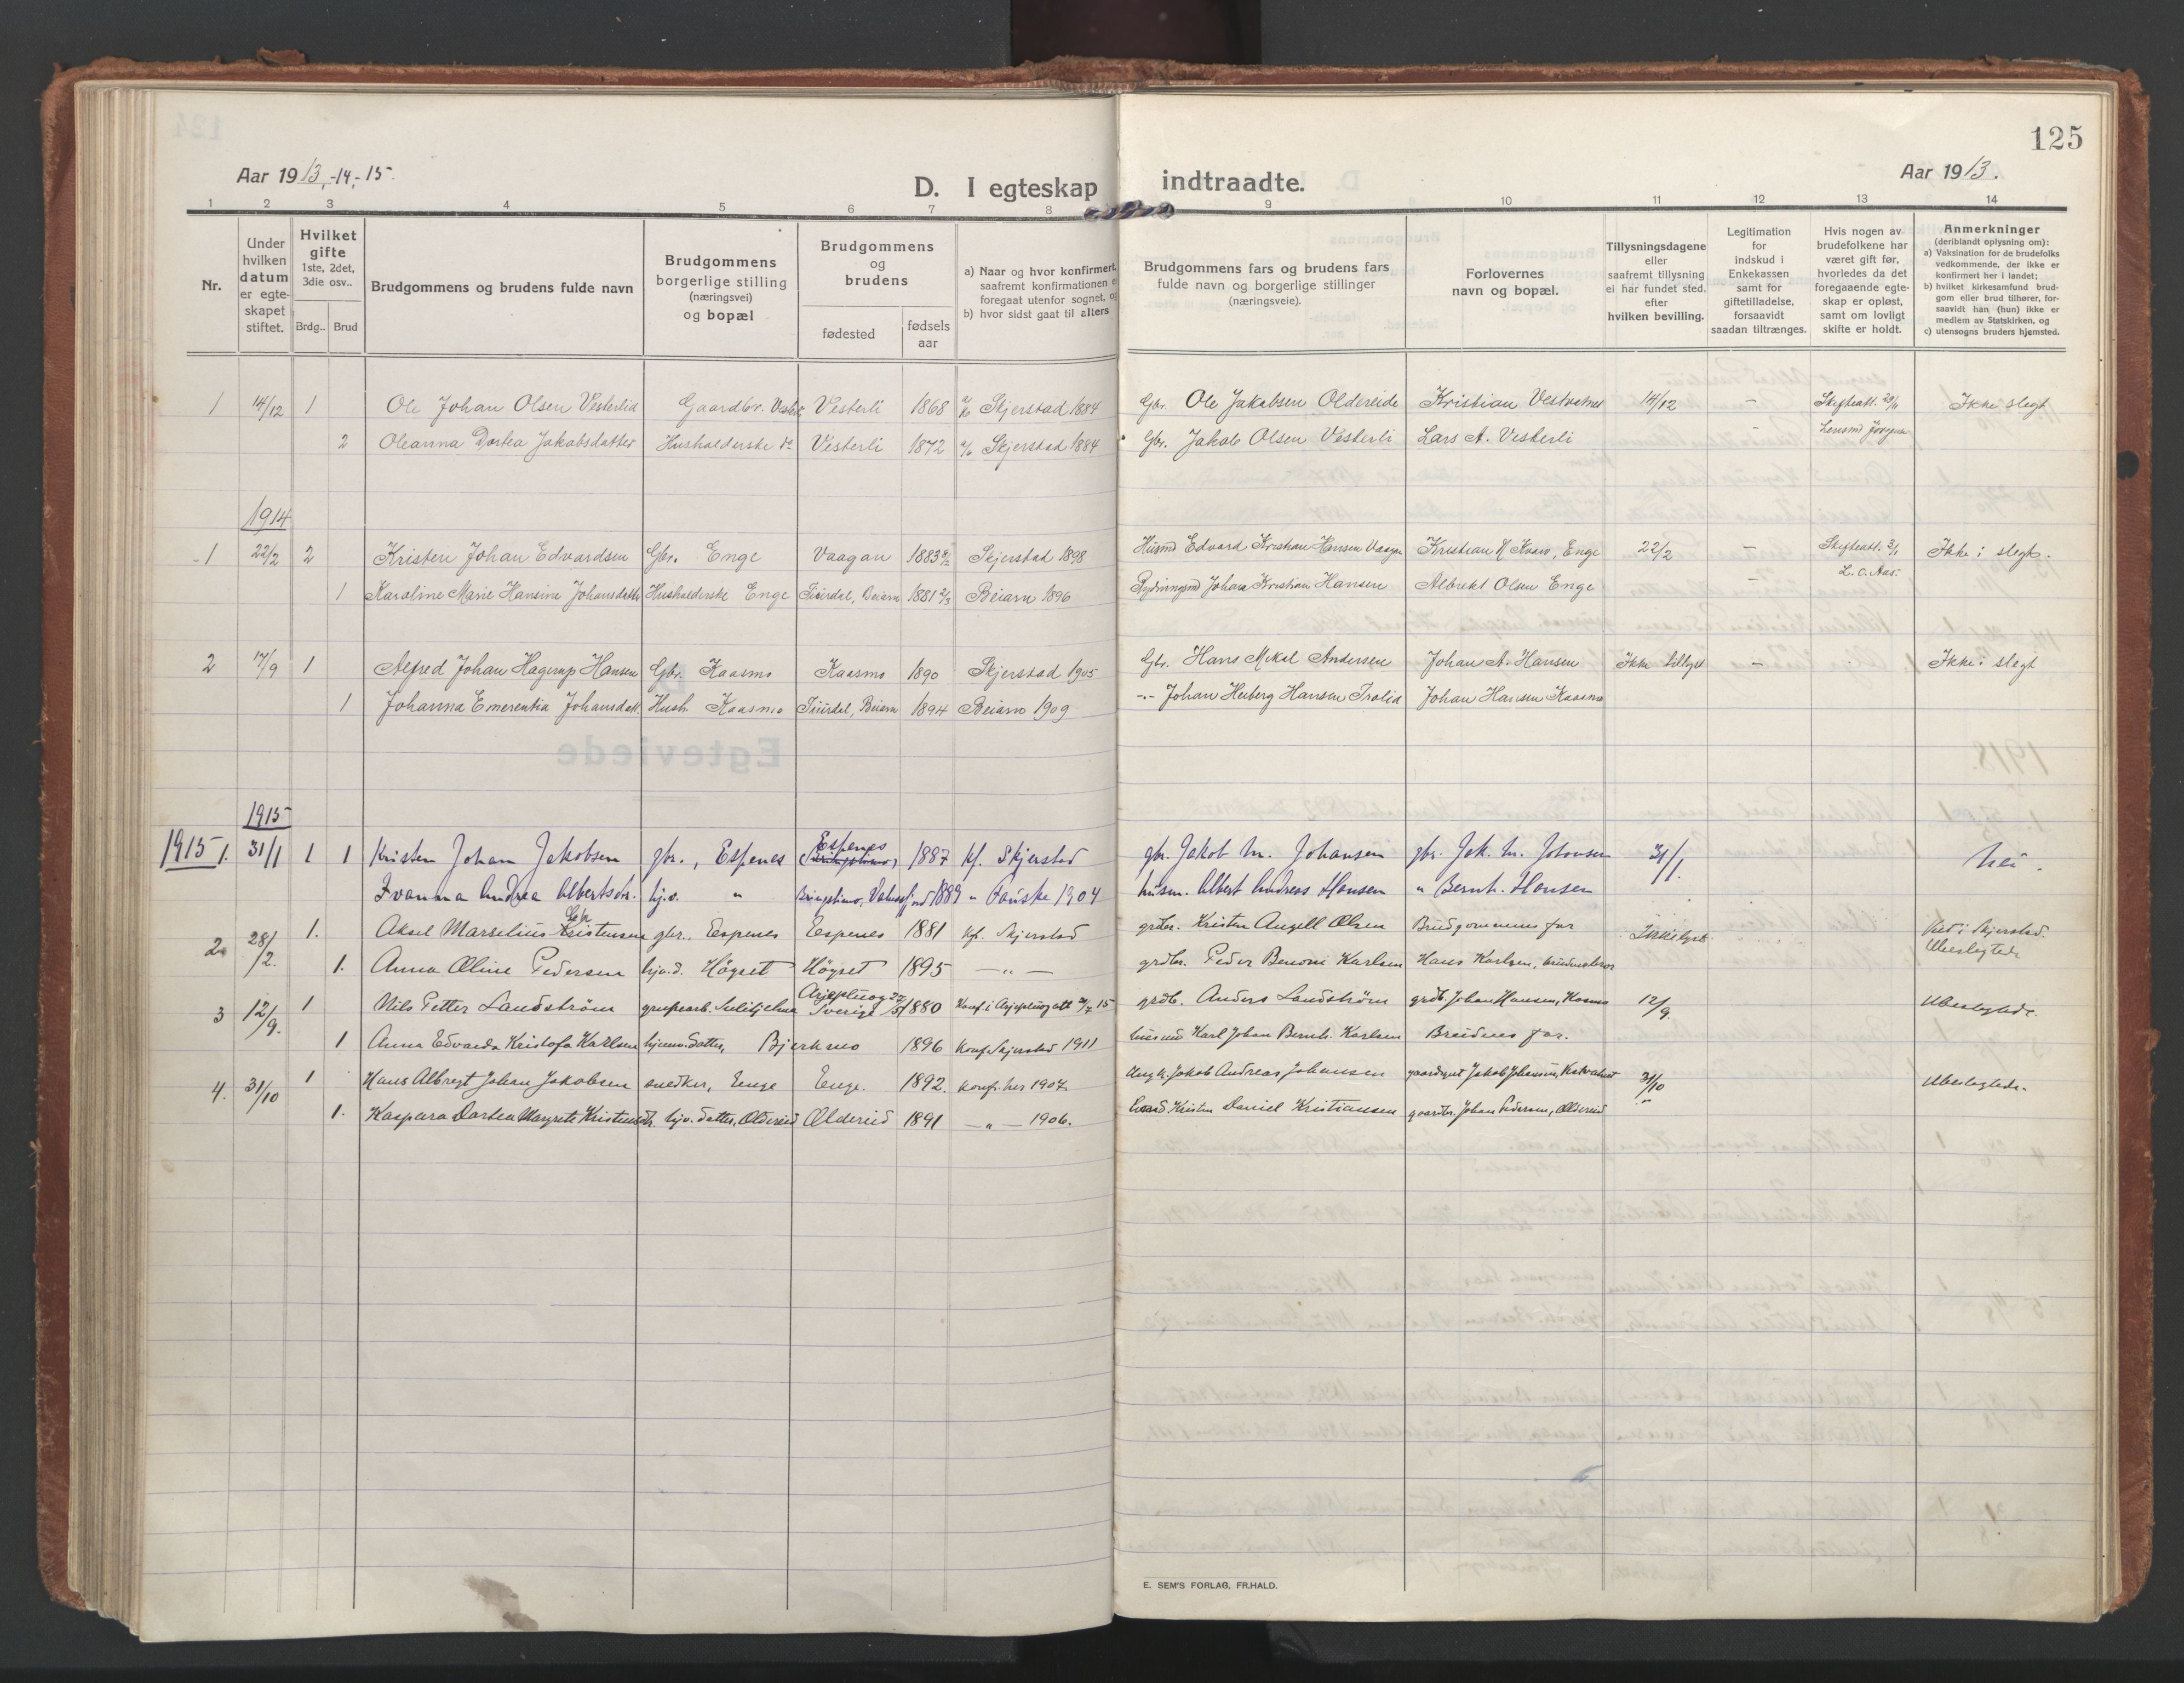 125
Aar 1913,-14,-15.
D. I egteskap indtraadte.
Aar 1913.
1 2 3 4 5 6 7 8 9 10 11 12 13 14
Nr.
Under hvilken datum er egte-skapet stiftet.
Hvilket gifte 1ste, 2det, 3die osv..
Brdg.. Brud
Brudgommens og brudens fulde navn
Brudgommens borgerlige stilling (næringsvei) og bopæl
Brudgommens og brudens
fødested
fødsels aar
a) Naar og hvor konfirmert,
saafremt konfirmationen
foregaat utenfor sognet,
b) hvor sidst gaat til alters
Brudgommens fars og brudens fars
fulde navn og borgerlige stillinger
(næringsveie).
Forlovernes
navn og bopæl.
Tillysningsdagene
eller
saafremt tillysning
ei har fundet sted,
efter
hvilken bevilling.
Legitimation
for
indskud i
Enkekassen
samt for
giftetilladelse,
forsaavidt
saadan tiltrænges.
Hvis nogen av
brudefolkene har
været gift før,
hvorledes da det
foregaaende egte-
skap er opløst,
samt om lovligt
skifte er holdt.
Anmerkninger
(deriblandt oplysning om):
a) Vaksination for de brudefolks
vedkommende, der ikke er
konfirmert her i landet;
b) hvilket kirkesamfund brud-
gom eller brud tilhører, for-
saavidt han (hun) ikke er
medlem av Statskirken, og
c) utensogns bruders hjemsted.
1 14/12 1 Ole Johan Olsen Vesterlid Gaardbr. Vesterli Vesterli 1868 Skjerstad 1884 Gbr. Ole Jakobsen Oldereide Kristian Vestvatnet 14/12 — Skifteatt. Ikke slegt
2 Oleanna Dortea Jakobsdatter Husholderske do Vesterli 1872 Skjerstad 1884 Gbr. Jakob Olsen Vesterli Lars A. Vesterli - Lensmd
1914
1 22/2 2 Kristen Johan Edvardsen Gbr. Enge Vaagan 1883 Skjerstad 1898 Husmd Edvard Kristian Hansen Vaagan Kristian H Kvæv, Enge 22/2 — Skifteatt. 3/1 Ikke i slegt.
1 Karoline Marie Hansine Johansdatter Husholderske Enge Tiurdal, Beiarn 1881 2/3 Beiarn 1896 Rydningsmd Johan Kristian Hansen Albrikt Olsen Enge — L. O. Aas.
2 17/9 1 Alfred Johan Hagerup Hansen Gbr. Kaasmo Kaasmo 1890 Skjerstad 1905 Gbr. Hans Mikal Andersen Johan A. Hansen Ikke tillyst — Ikke i slegt
1 Johanna Emerentia Johansdatt. Hush. Kaasmo Tiurdal, Beiarn 1894 Beiarn 1909 -"- Johan Heiberg Hansen Trolid Johan Hansen Kaasmo
Egteviede
1915
1915 1. 31/1 1 1 Kristen Johan Jakobsen gbr., Espenes Espenes 1887 kf. Skjerstad gbr. Jakob M. Johansen gbr. Jak. M. Johansen 31/1. Nei.
Ivanna Andrea Albertsdtr. hjv. " Bringslimo, Valnesfjord 1889 " Fauske 1904 husm. Albert Andreas Hansen " Bernh. Hansen
2. 28/2. 1. Aksel Marselius Kristensen gbr., Espenes Espenes 1881 kf. Skjerstad grdbr. Kristen Angell Olsen Brudgommens far Ikke lyst. Viet i Skjerstad.
1. Anna Oline Pedersen hjv.d. Högset Högset 1895 —"— grdbr. Peder Benoni Karlsen Hans Karlsen, brudens bror Ubeslegtede
3 12/9. 1 Nils Petter Landström grubearb. Sulitjelma Arjepluog Sverige 1880 Konf. i Arjepluog att. 15 grdb. Anders Landström grdb. Johan Hansen, Kosmo 12/9. Ubeslegtede.
1 Anna Edvarda Kristofa Karlsen hjemv. datter, Bjerkmo 1896 Konf. Skjerstad 1911 husmd Karl Johan Bernh. Karlsen Brudens far.
4. 31/10 1 Hans Albregt Johan Jakobsen snedker, Enge Enge. 1892. konf. her 1907. Jakob Andreas Johansen gaardbrut Jakob Johansen, 31/10 Ubeslegtede.
1. Kaspara Dortea Margrete Kristensdtr. hjv. datter, Oldereid Oldereid 1891 —"— 1906. Kristen Daniel Kristiansen gaardbr. Johan Pedersen, Oldereid "
E. SEM'S FORLAG, FR.HALD.